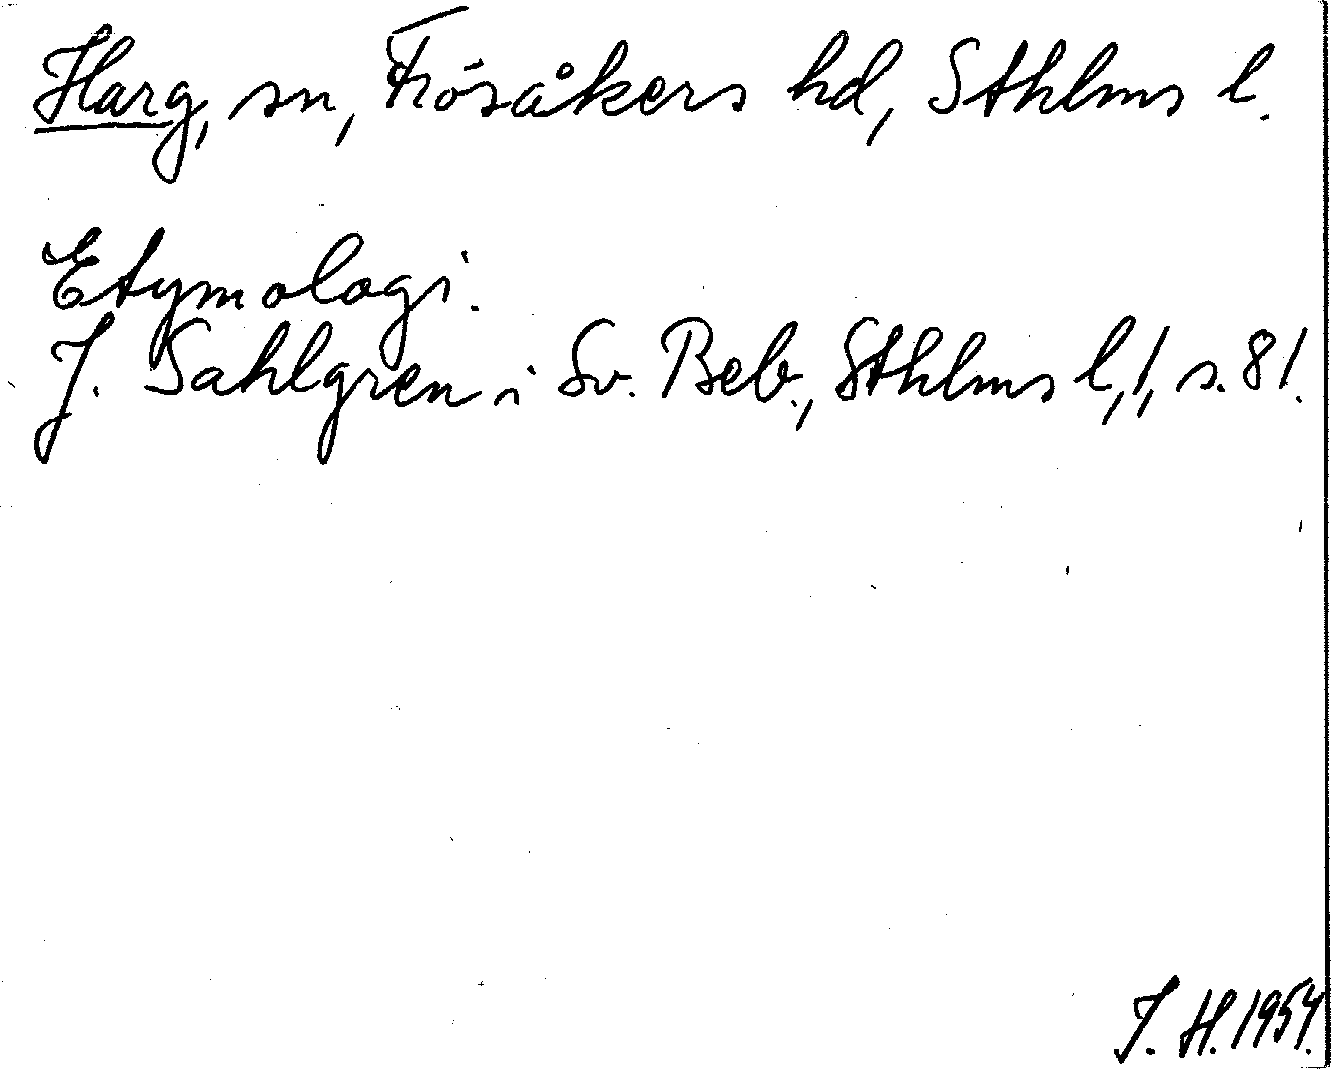 Harg, sn, Frösåkers hd, Sthlms l.
Etymologi.
J. Sahlgren i Sv. Beb., Sthlms l, 1, s. 81.
J. H. 1954.